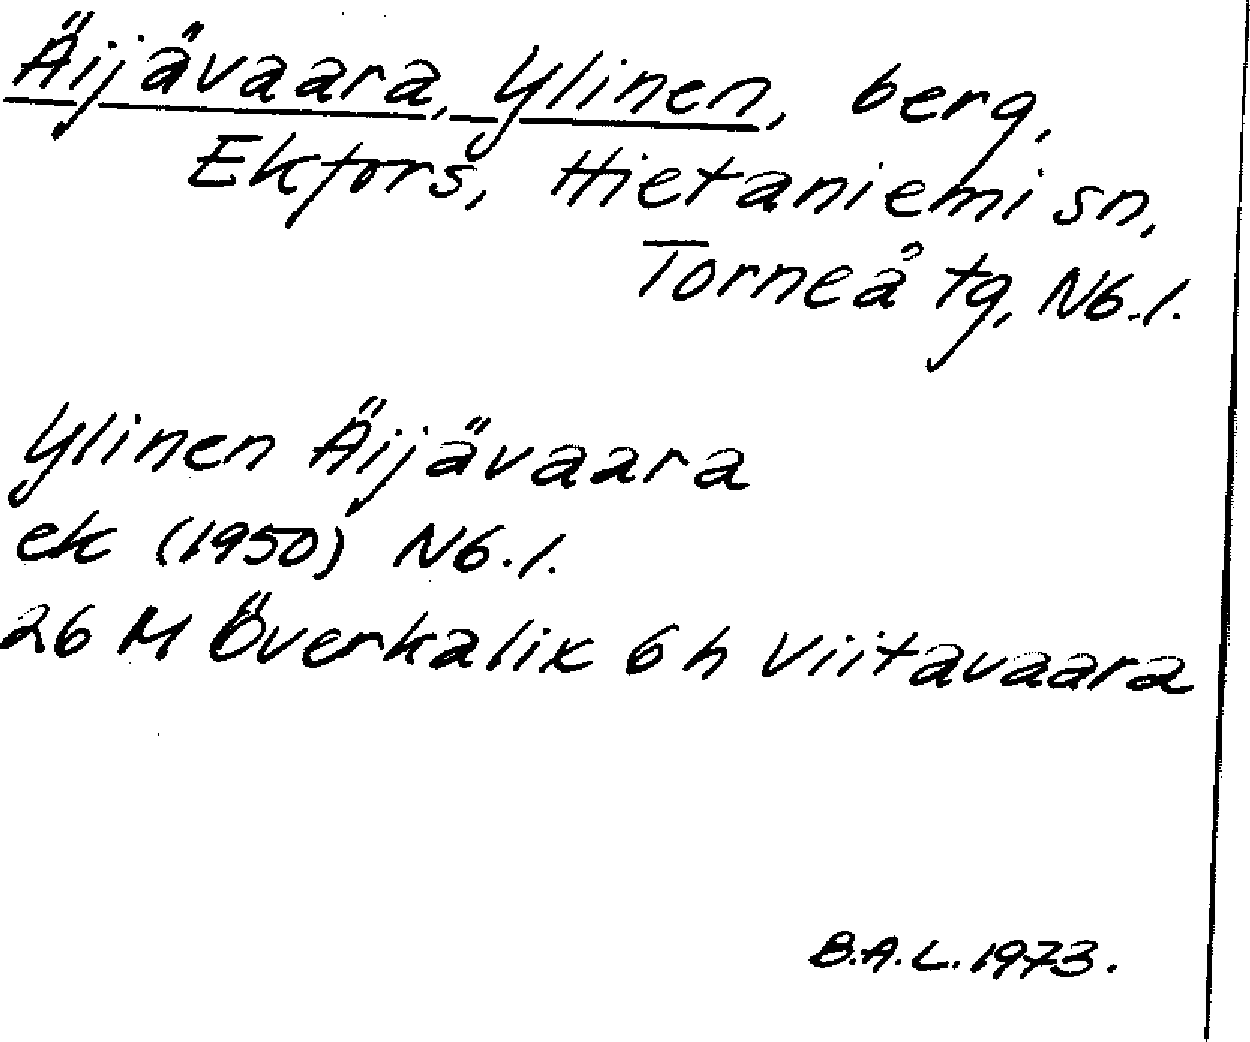 Äijävaara, Ylinen, berg,
Ekfors, Hietaniemi sn,
Torneå tg, Nb.l.
Ylinen Äijävaara
ek (1950) Nb.l.
26 M Överkalix 6 h Viitavaara
B.A.L. 1973.